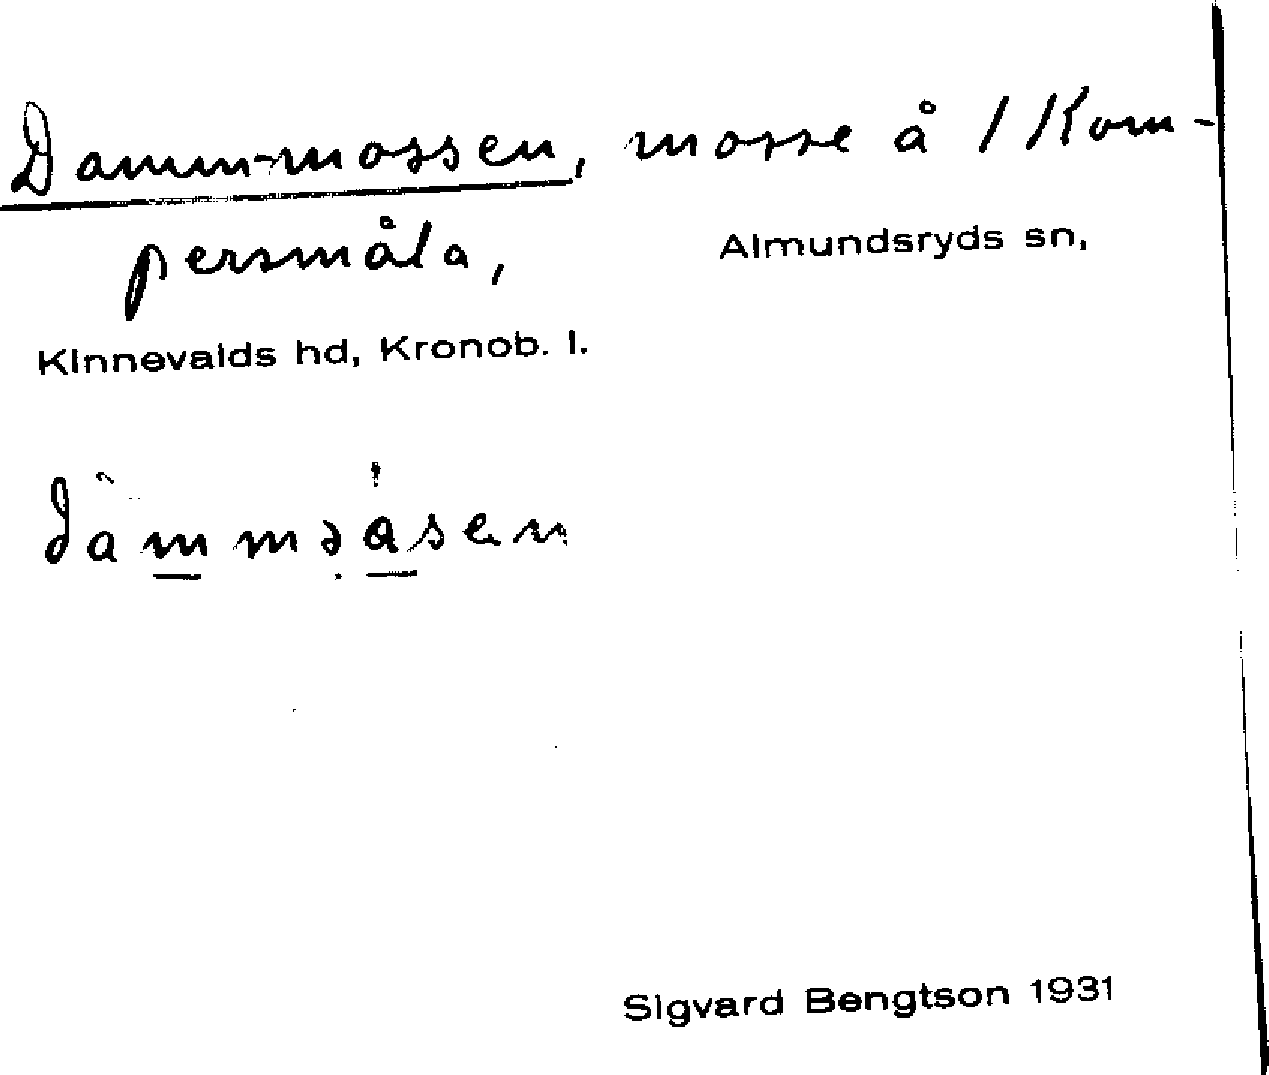 Damm-mossen, mosse å 1 Kom-
persmåla,
Almundsryds sn,
Kinnevalds hd, Kronob. l.
Sigvard Bengtson 1931